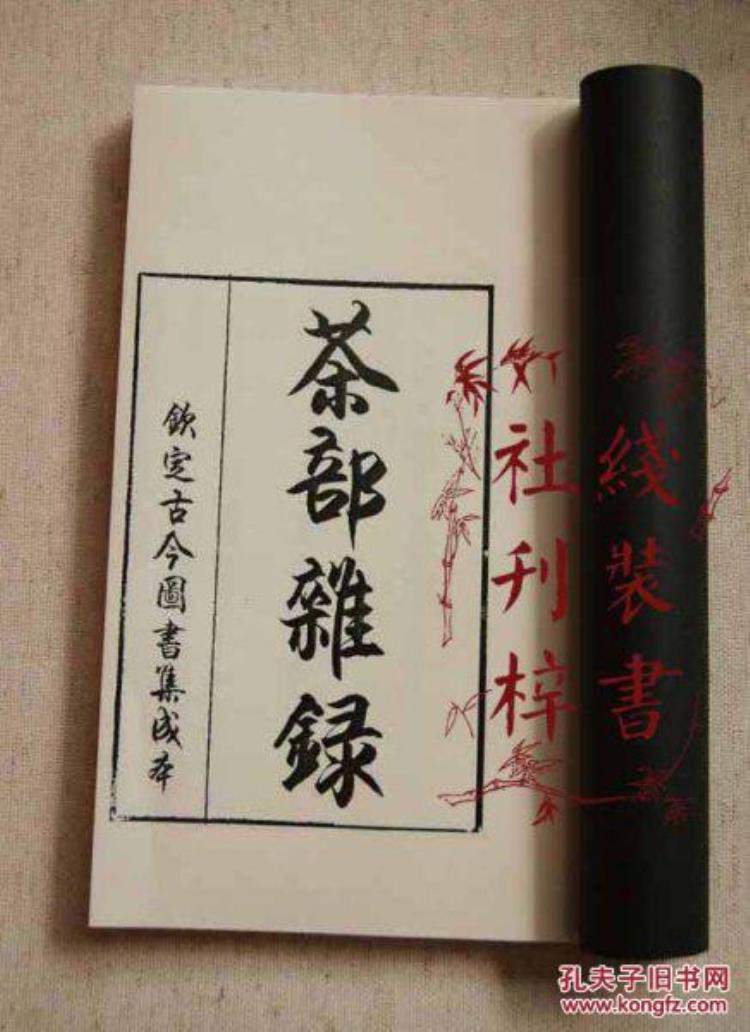 茶部雜録
欽定古今圖書集成本
綫装書
社刊梓
孔夫子旧书网
www.kongfz.com